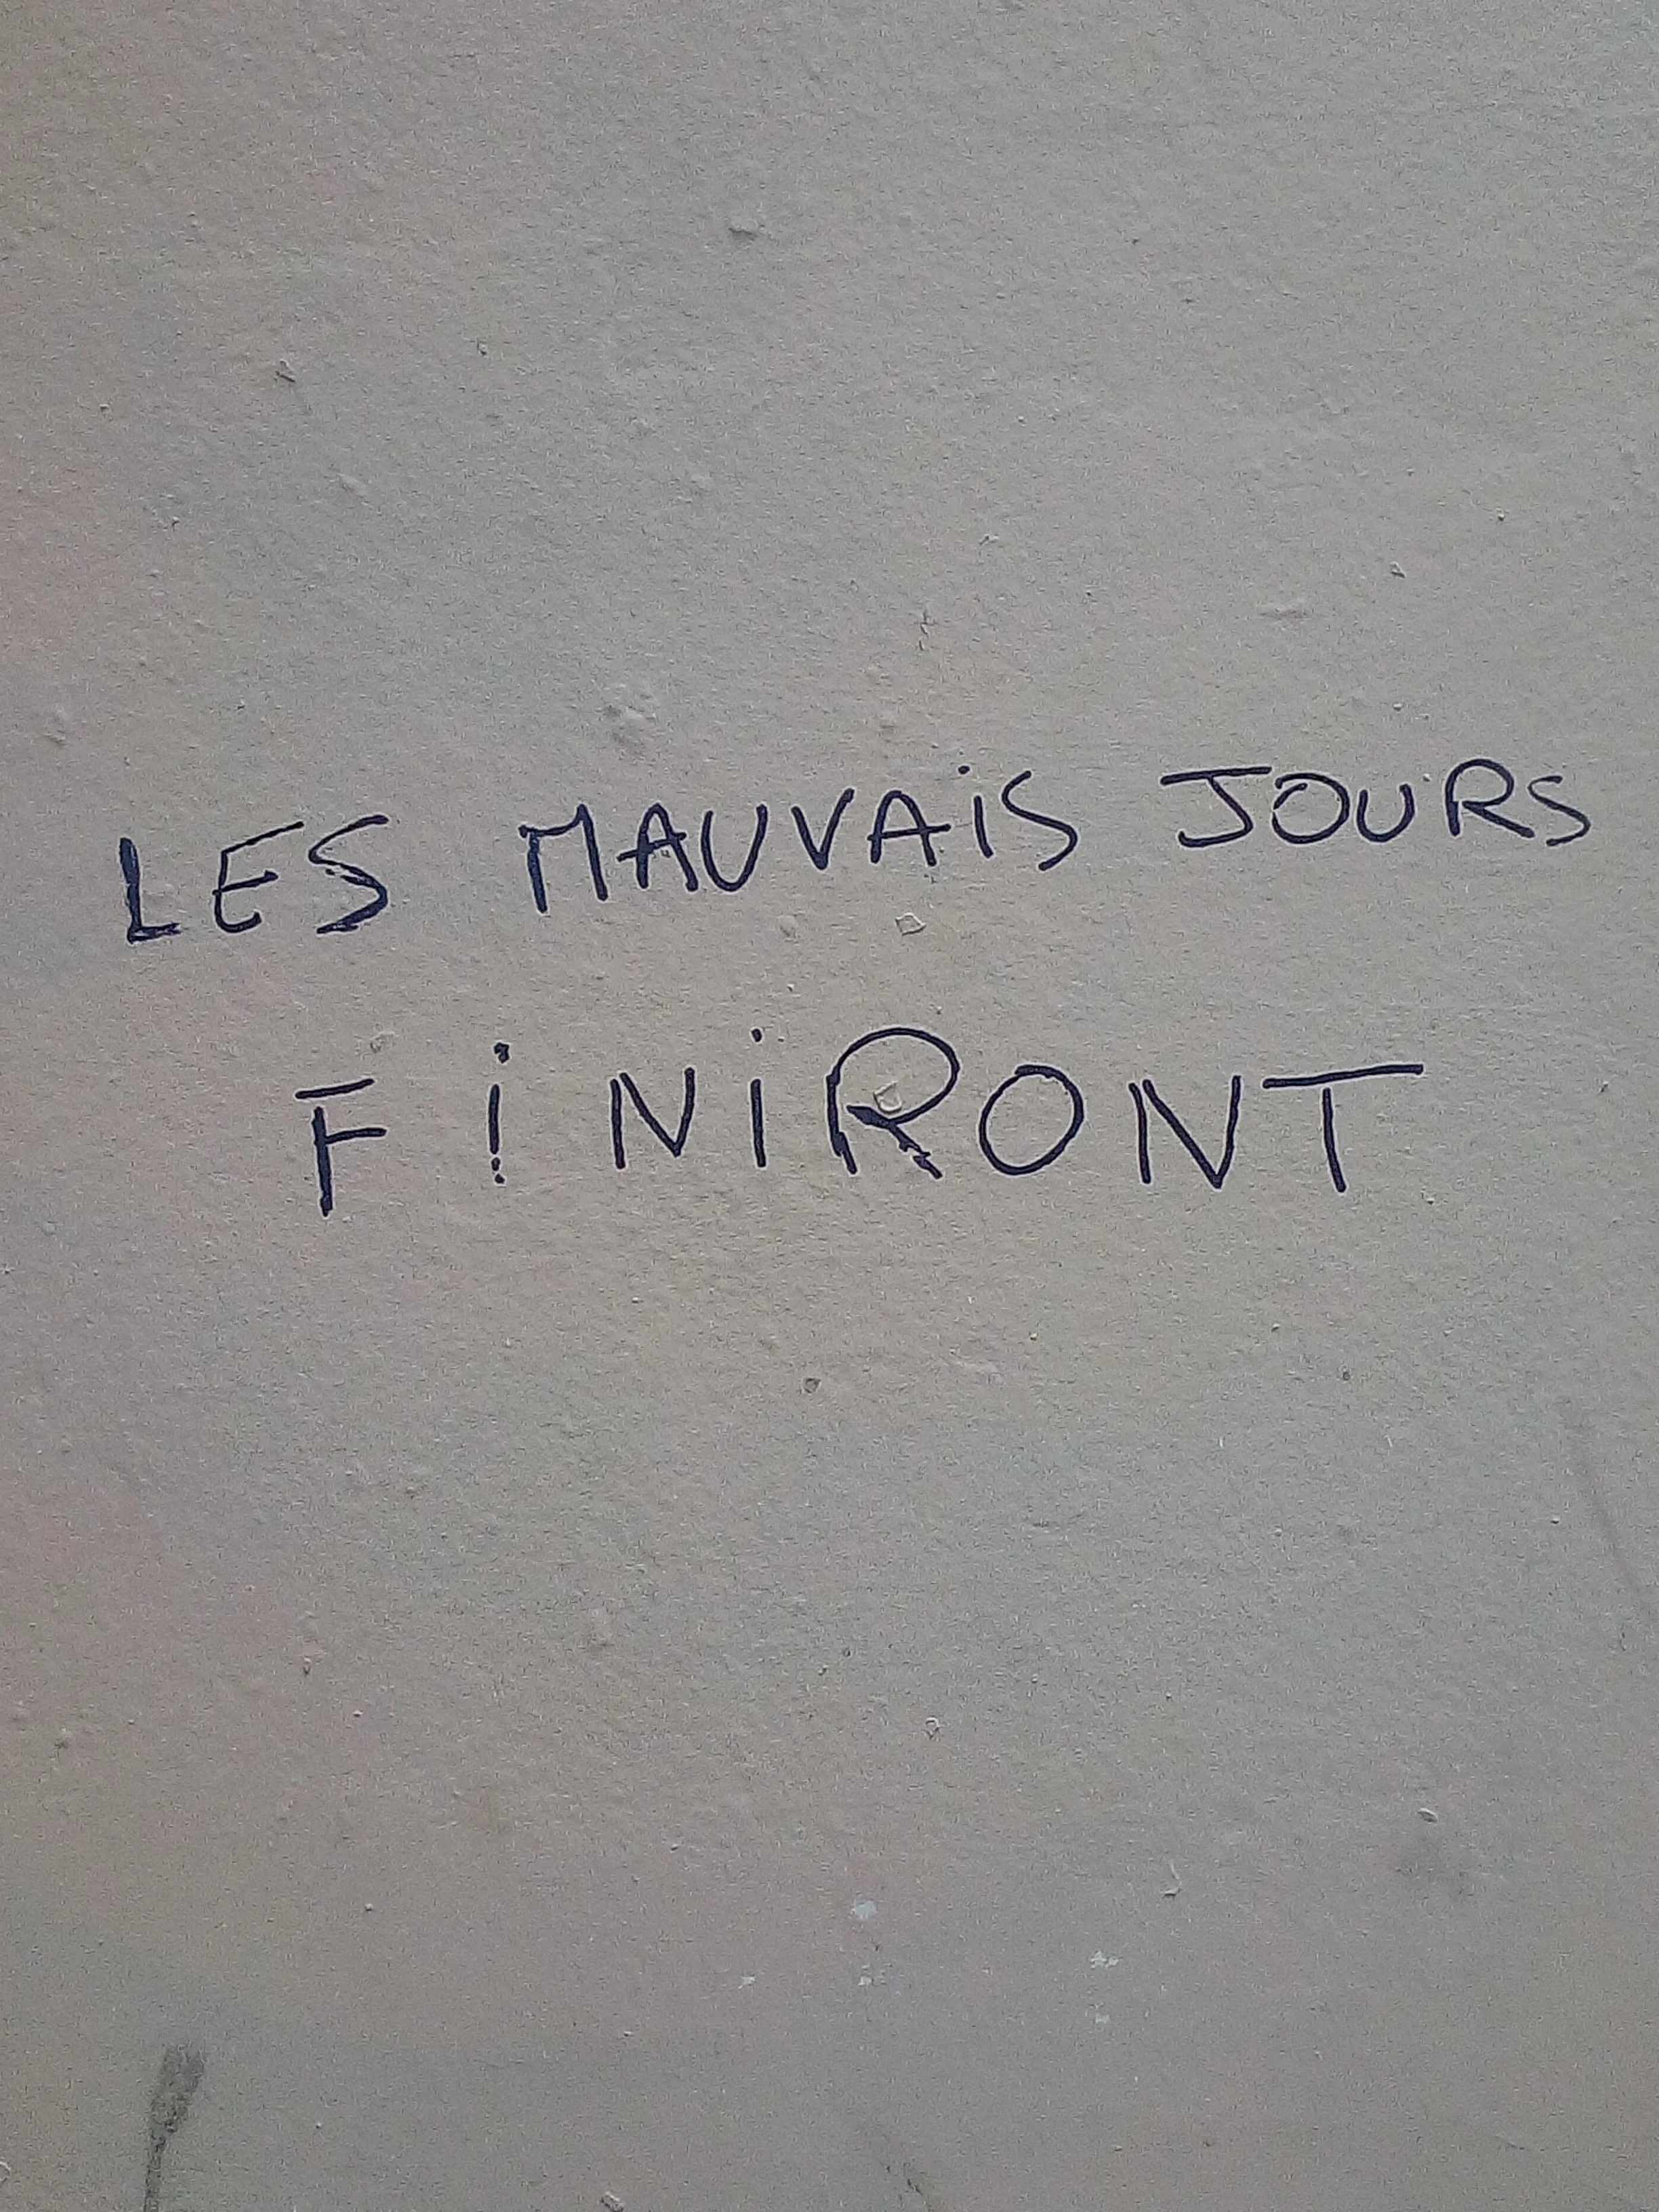 LES MAUVAiS JOURS
FiNiRONT